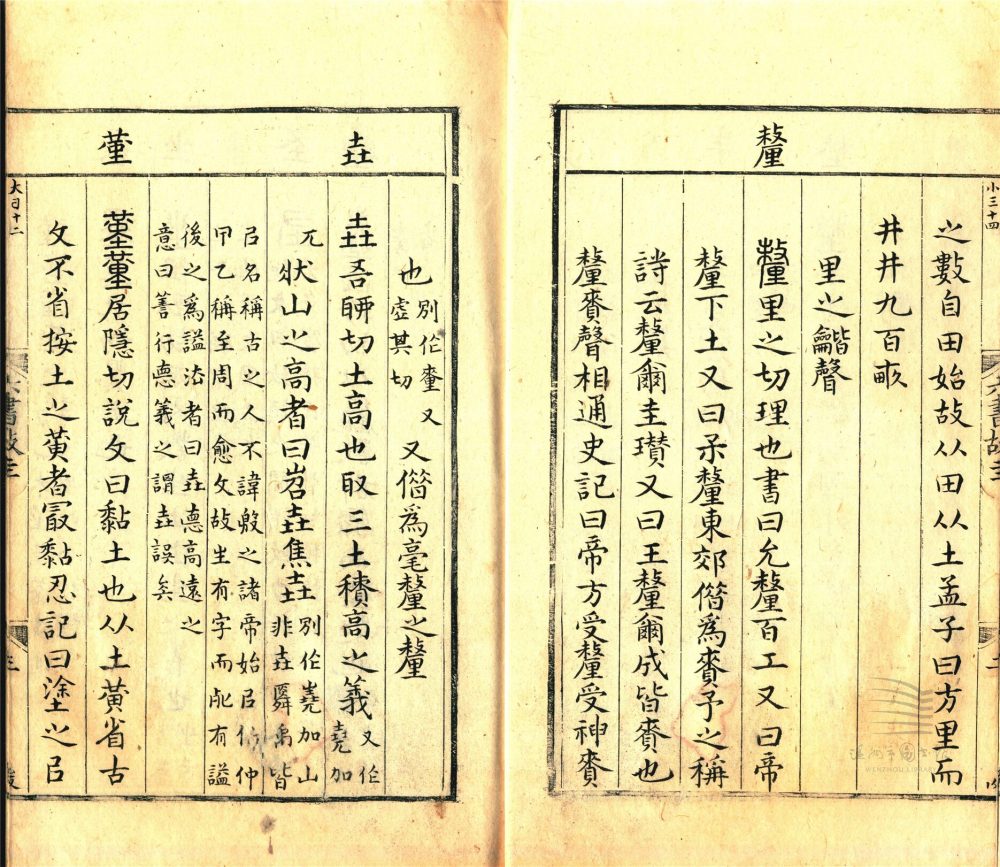 釐
小三十四
之數自田始故从田从土孟子曰方里而
井井九百畞
里之龤聲
釐里之切理也書曰允釐百工又曰帝
釐下土又曰予釐東郊偕爲賚予之稱
詩云釐爾圭瓚又曰王釐爾成皆賚也
釐賚聲相通史記曰帝方受釐受神賚
六書故三
垚
堇
也別作䅘又
虛其切
又偕爲毫釐之釐
垚吾聊切土高也取三土積高之義又作
堯加
兀
狀山之高者曰岧垚焦垚別作嶤加山
非垚舜禹皆
㠯名稱古之人不諱殷之諸帝始㠯行仲
甲乙稱至周而愈文故生有字而死有謚
後之爲謚法者曰垚悳高遠之
意曰善行悳義之謂垚誤矣
堇居隱切說文曰黏土也从土黃省古
文不省按土之黃者冣黏忍記曰塗之㠯
大曰十二
六書故三
三
溫州市圖書館
WENZHOU LIBRARY